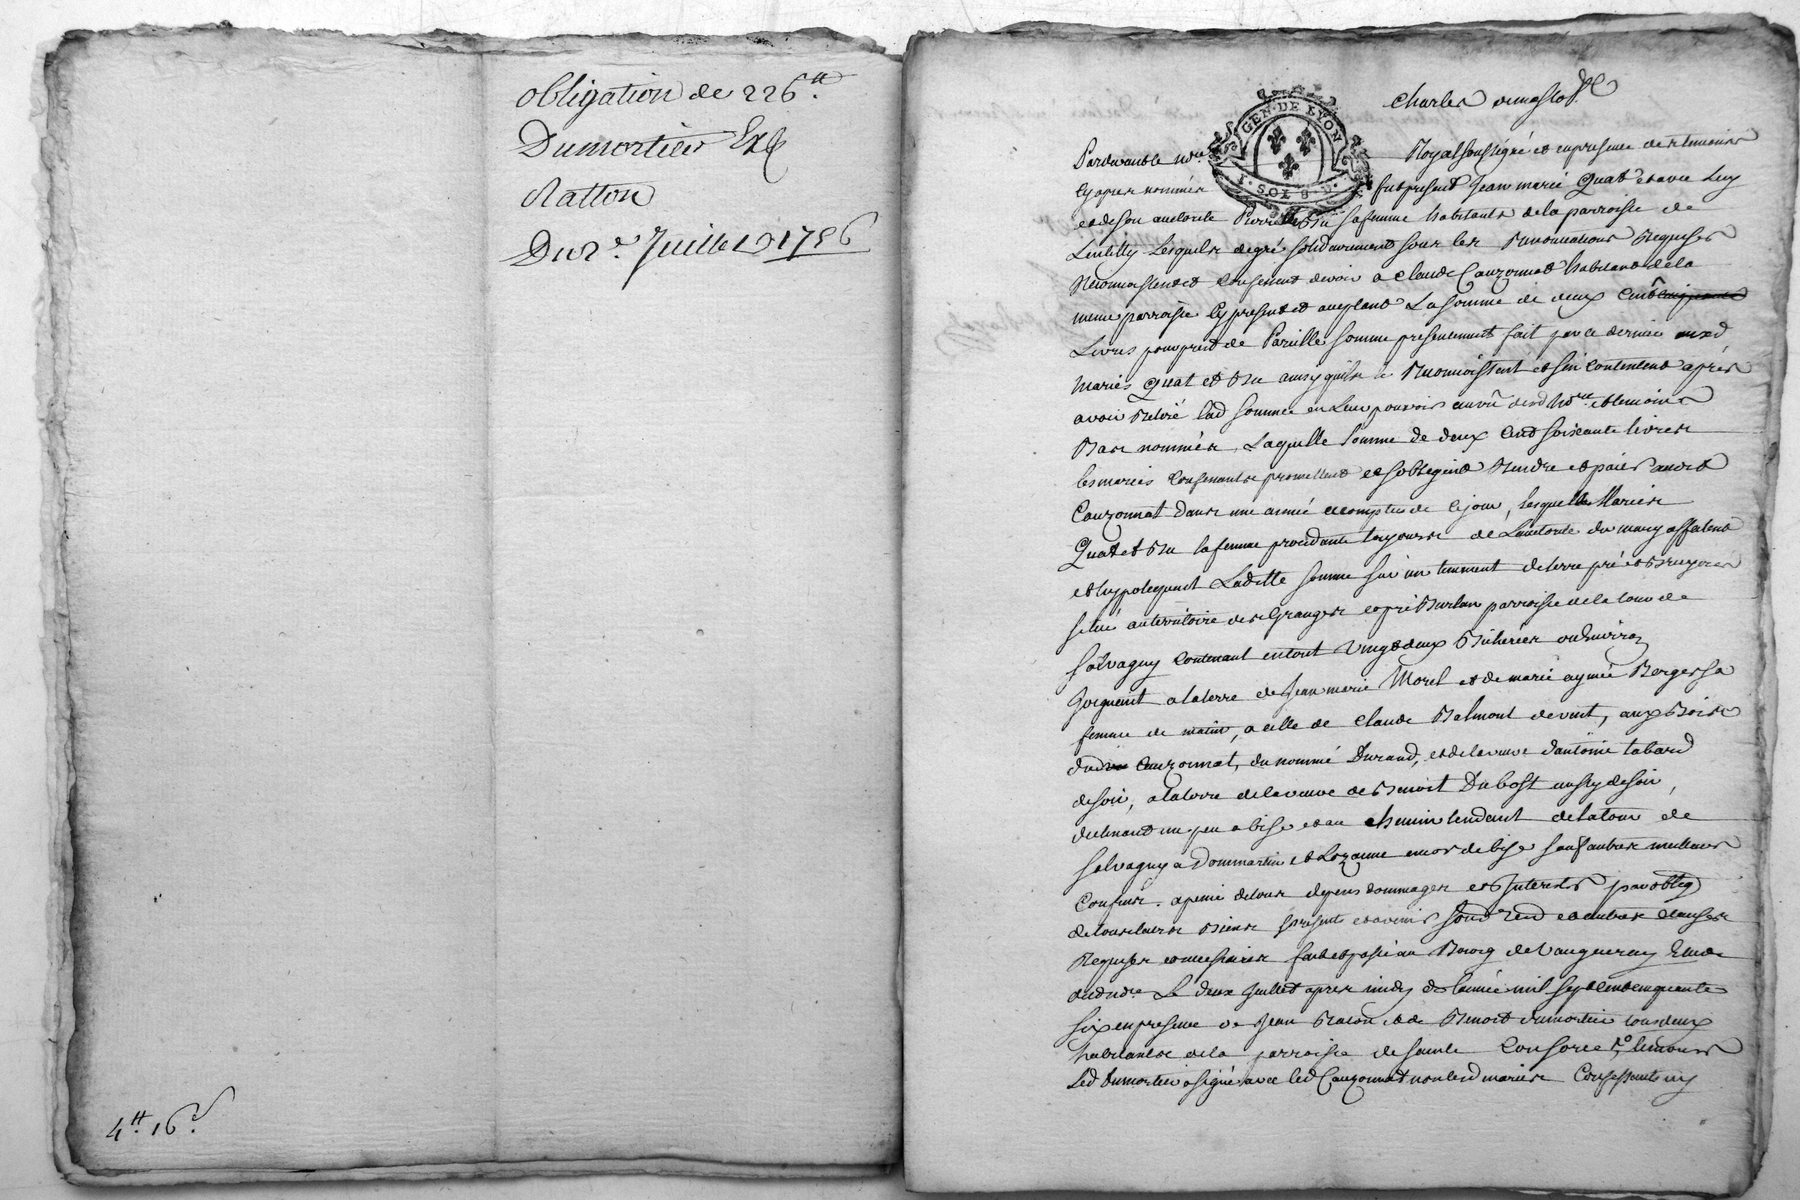 obligation de 226.tt
Dumortier Exp
Ratton
Du 2.e Juillet 1756
4.tt 16.s
Charles
GEN·DE LYON
1·SOL 8·D·
Pardevant le no.re Royal soussigné et en presence des temoins
cy apres nommés fut present Jean marie Quat et avec luy
et de son authorité Pierrette Bu sa femme habitants de la parroisse de
Lentilly Lesquels de gré solidairement sous les Renonciations Requises
Reconnoissent et Confessent devoir a Claude Cauzonnat habitant de la
meme parroisse Cy present et aceptant La somme de deux Cent
Livres pour prest de Pareille somme presentement fait par ce dernier auxd
mariés Quat et Bu ainsy quils le Reconnoissent et sen Contentent après
avoir Retiré lad somme en Leur pouvoir au vû dud No.re et temoins
Bas nommés, Laquelle somme de deux Cent soixante livres
les mariés Confessants promettent et sobligent Rendre et paier audit
Cauzonnat dans une année a compter de Cejour, lesquels Mariés
Quat et Bu sa femme procedante toujours de Lautorité du mary affectent
et hypotequent Laditte somme sur un tenement de terre pré et Bruyeres
situé au territoire des Granges et pré Burlan parroisse de la tour de
Salvagny Contenant en tout Vingt deux Bicherées ou Environ
Joignant a la terre de Jean marie Morel et de marie aymée Berger sa
femme de matin, a celle de Claude Belmont de vent, aux Bois
dud Cauzonnat, du nommé Durand, et de la veuve dantoine tabard
de soir, a la terre de la veuve de Benoit Dubost aussy de soir,
declinant un peu a bise et au chemin tendant de la tour de
Salvagny a Dommartin et Lozanne encor de bise sauf autres meilleurs
Confins. a peine de tous depens dommages et Interests par oblig
de tous leurs Biens presents et avenir soum Ren et autres clauses
Requises et necessaires fait et passé au Bourg de Vaugneray Etude
dud no.re Le deux Juillet apres midy de lannée mil sept cent cinquante
six en presence de Jean Raton et de Benoit dumortier tous deux
habitants de la parroisse de sainte Consorce temoins
Led Dumortier a signé avec led Cauzonnat non lesd mariés Confessants ny